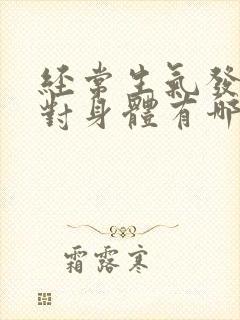 經常生氣發
對身體有哪
霜露寒